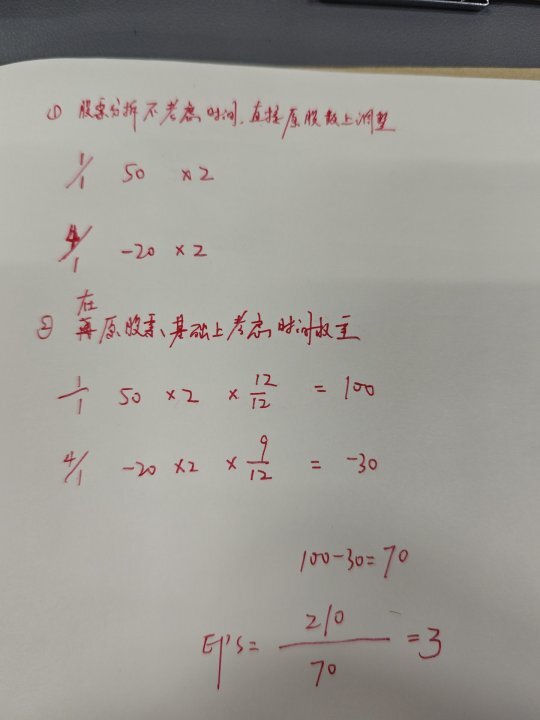 ① 股票分拆不考虑时间,直接原股数上调整
1/1 50 ×2
4/1 -20 ×2
在
② 原股票基础上考虑时间权重
1/1 50 ×2 × 12/12 = 100
4/1 -20 ×2 × 9/12 = -30
100-30=70
EPS= 210/70 =3